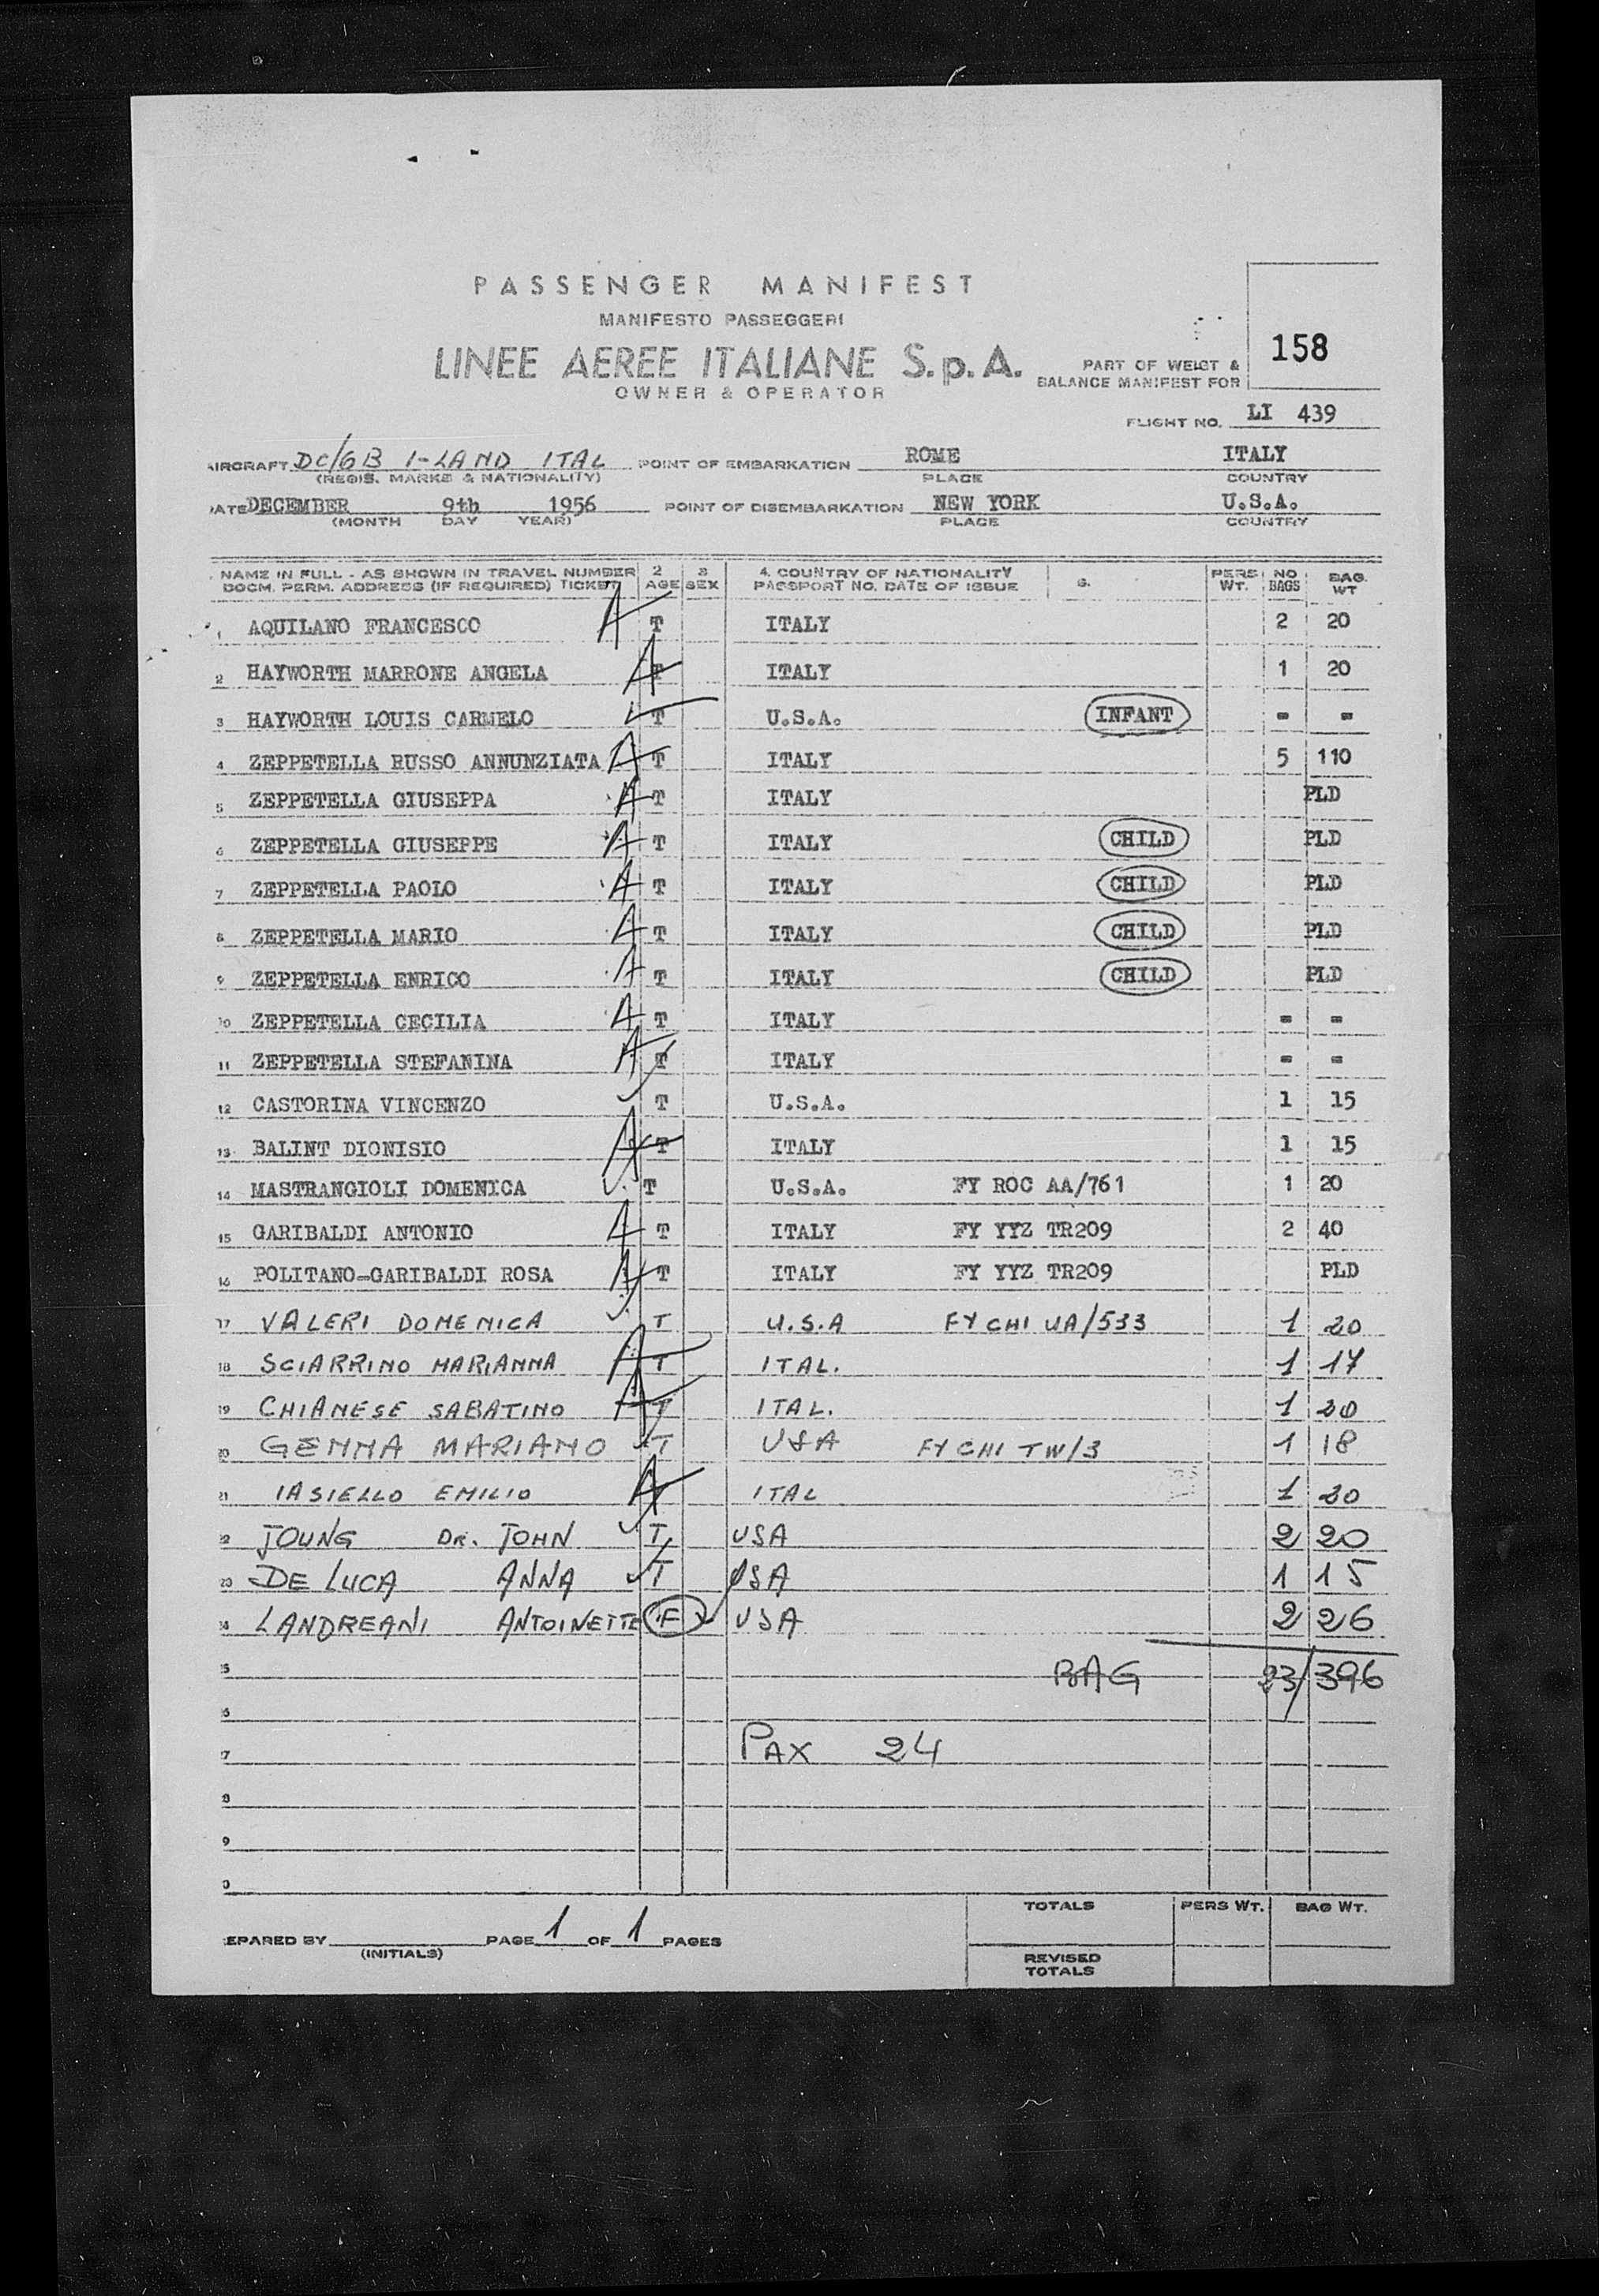 PASSENGER MANIFEST
MANIFESTO PASSEGGERI
LINEE AEREE ITALIANE S.p.A.
OWNER & OPERATOR
PART OF WEIGT &
BALANCE MANIFEST FOR
158
FLIGHT NO. LI 439
AIRCRAFT DC/6B I-LAND ITAL POINT OF EMBARKATION ROME ITALY
(REGIS. MARKS & NATIONALITY) PLACE COUNTRY
DATE DECEMBER 9th 1956 POINT OF DISEMBARKATION NEW YORK U.S.A.
(MONTH DAY YEAR) PLACE COUNTRY
NAME IN FULL - AS SHOWN IN TRAVEL NUMBER 2 3 4. COUNTRY OF NATIONALITY PERS NO BAG.
DOCM. PERM. ADDRESS (IF REQUIRED) TICKET AGE SEX PASSPORT NO. DATE OF ISSUE WT. BAGS WT
1 AQUILANO FRANCESCO A T ITALY 2 20
2 HAYWORTH MARRONE ANGELA A T ITALY 1 20
3 HAYWORTH LOUIS CARMELO T U.S.A. INFANT - -
4 ZEPPETELLA RUSSO ANNUNZIATA A T ITALY 5 110
5 ZEPPETELLA GIUSEPPA A T ITALY PLD
6 ZEPPETELLA GIUSEPPE A T ITALY CHILD PLD
7 ZEPPETELLA PAOLO A T ITALY CHILD PLD
8 ZEPPETELLA MARIO A T ITALY CHILD PLD
9 ZEPPETELLA ENRICO A T ITALY CHILD PLD
10 ZEPPETELLA CECILIA A T ITALY - -
11 ZEPPETELLA STEFANINA A T ITALY - -
12 CASTORINA VINCENZO T U.S.A. 1 15
13 BALINT DIONISIO A T ITALY 1 15
14 MASTRANGIOLI DOMENICA T U.S.A. FY ROC AA/761 1 20
15 GARIBALDI ANTONIO A T ITALY FY YYZ TR209 2 40
16 POLITANO-GARIBALDI ROSA A T ITALY FY YYZ TR209 PLD
17 VALERI DOMENICA T U.S.A FY CHI UA/533 1 20
18 SCIARRINO MARIANNA A T ITAL. 1 17
19 CHIANESE SABATINO A T ITAL. 1 20
20 GEMMA MARIANO T USA FY CHI TW/3 1 18
21 IASIELLO EMILIO A ITAL 1 20
22 JOUNG DR. JOHN T USA 2 20
23 DE LUCA ANNA T USA 1 15
24 LANDREANI ANTOINETTE F USA 2 26
5 BAG 23/396
6
7 PAX 24
8
9
0
TOTALS PERS WT. BAG WT.
EPARED BY PAGE 1 OF 1 PAGES
(INITIALS)
REVISED
TOTALS